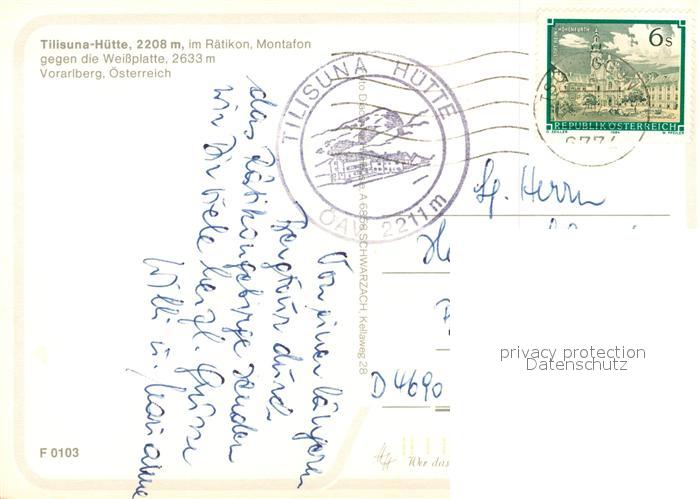 Tilisuna-Hütte, 2208 m, im Rätikon, Montafon
gegen die Weißplatte, 2633 m
Vorarlberg, Österreich
TILISUNA HÜTTE
ÖAV 2211 m
6s
REPUBLIK ÖSTERREICH
SCHWARZACH, Kellaweg 28
Von einer längeren
Bergtour durch
das Rätikongebirge senden
wir Dir viele herzl. Grüsse
Willi u. Marianne
Sg. Herrn
D 4690
privacy protection
Datenschutz
F 0103
Wer das